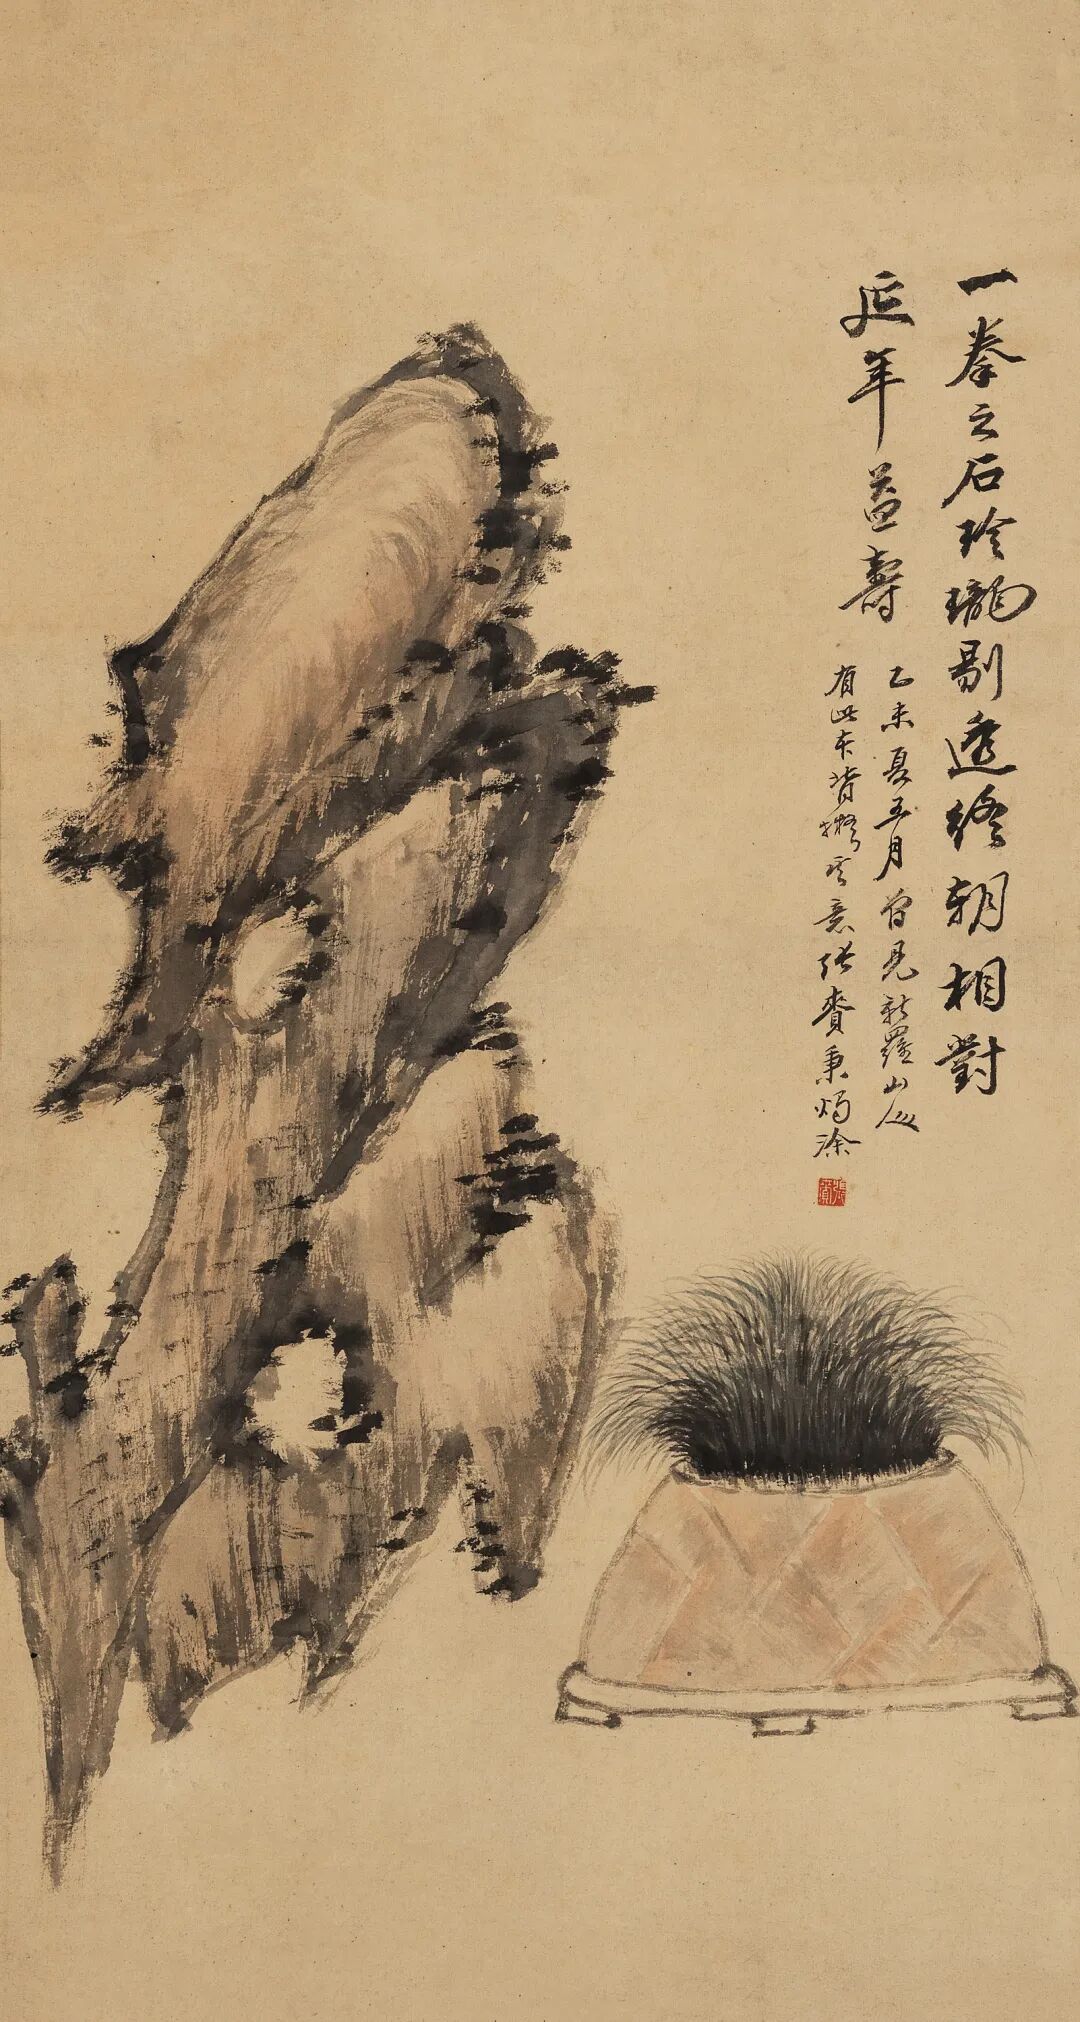 一拳之石玲瓏剔透終朝相對
延年益壽
乙未夏五月曾見新羅山人
有此本背擬其意張賚秉燭塗
張賚